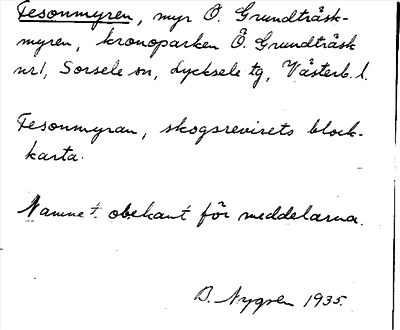 Tesonmyren, myr Ö. Grundträsk-
myren, kronoparken Ö. Grundträsk
nr 1, Sorsele sn, Lycksele tg, Västerb. l.
Tesonmyran, skogsrevirets block-
karta.
Namnet obekant för meddelarna.
B. Nygren 1935.